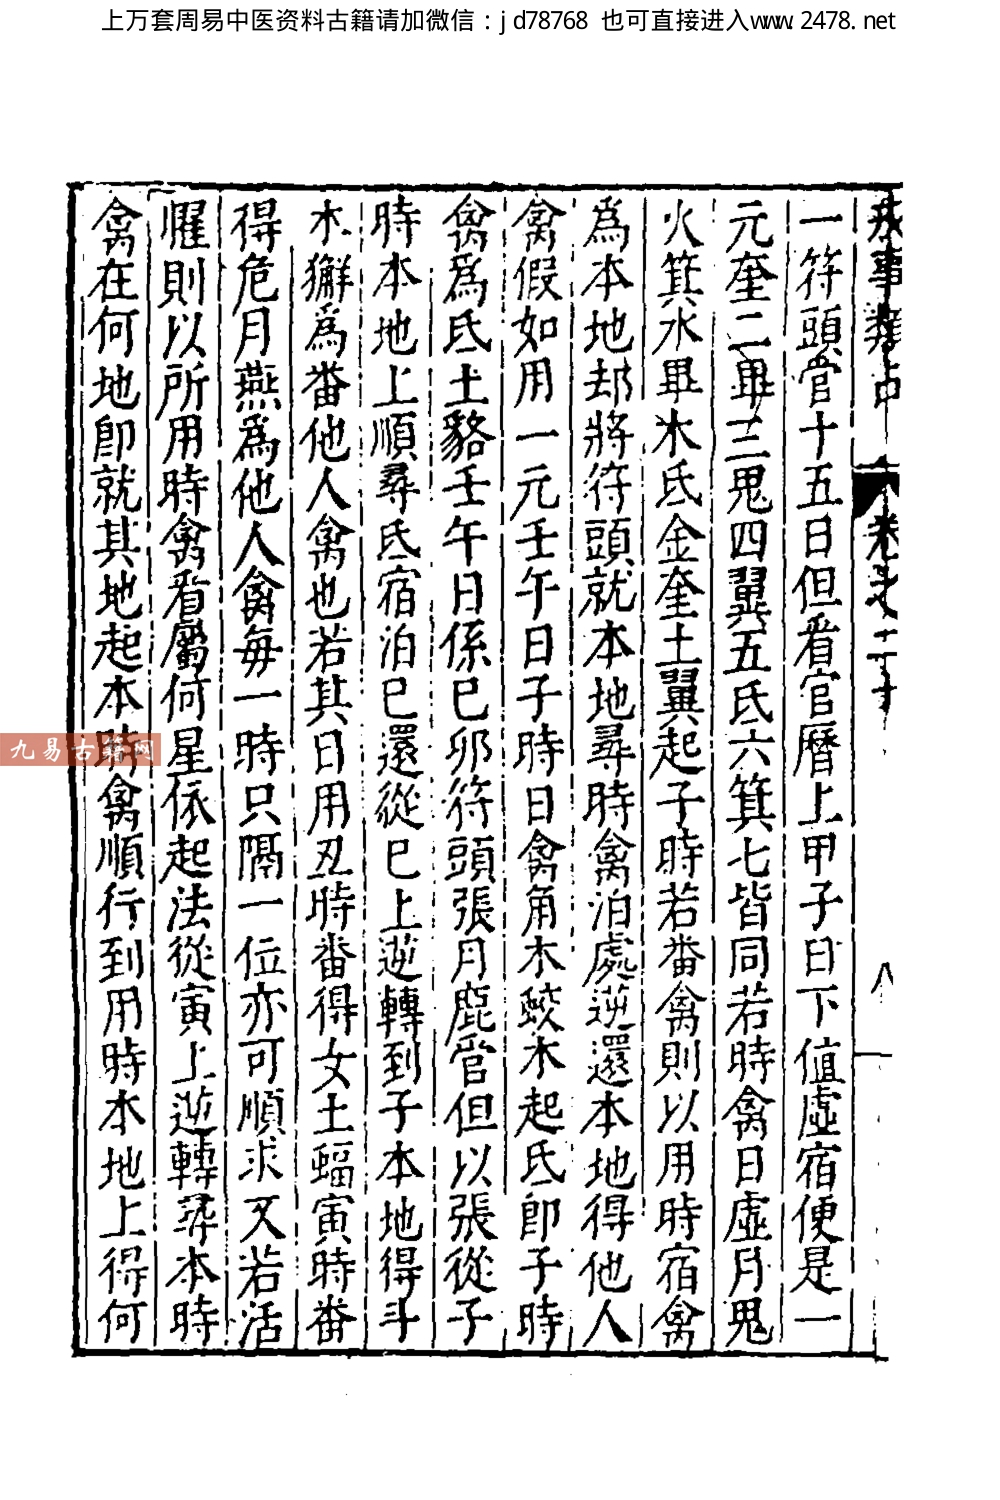 上万套周易中医资料古籍请加微信：jd78768 也可直接进入www.2478.net
戎事類占 卷之二十 八
一符頭管十五日但看官曆上甲子日下値虛宿便是一
元奎二畢三鬼四翼五氐六箕七皆同若時禽日虛月鬼
火箕水畢木氐金奎土翼起子時若番禽則以用時宿禽
爲本地却將符頭就本地尋時禽泊處逆還本地得他人
禽假如用一元壬午日子時日禽角木蛟木起氐卽子時
禽爲氐土貉壬午日係已卯符頭張月鹿管但以張從子
時本地上順尋氐宿泊巳還從巳上逆轉到子本地得斗
木獬爲番他人禽也若其日用丑時番得女土蝠寅時番
得危月燕爲他人禽每一時只隔一位亦可順求又若活
懼則以所用時禽看屬何星依起法從寅上逆轉尋本時
禽在何地卽就其地起本時禽順行到用時本地上得何
九易古籍网